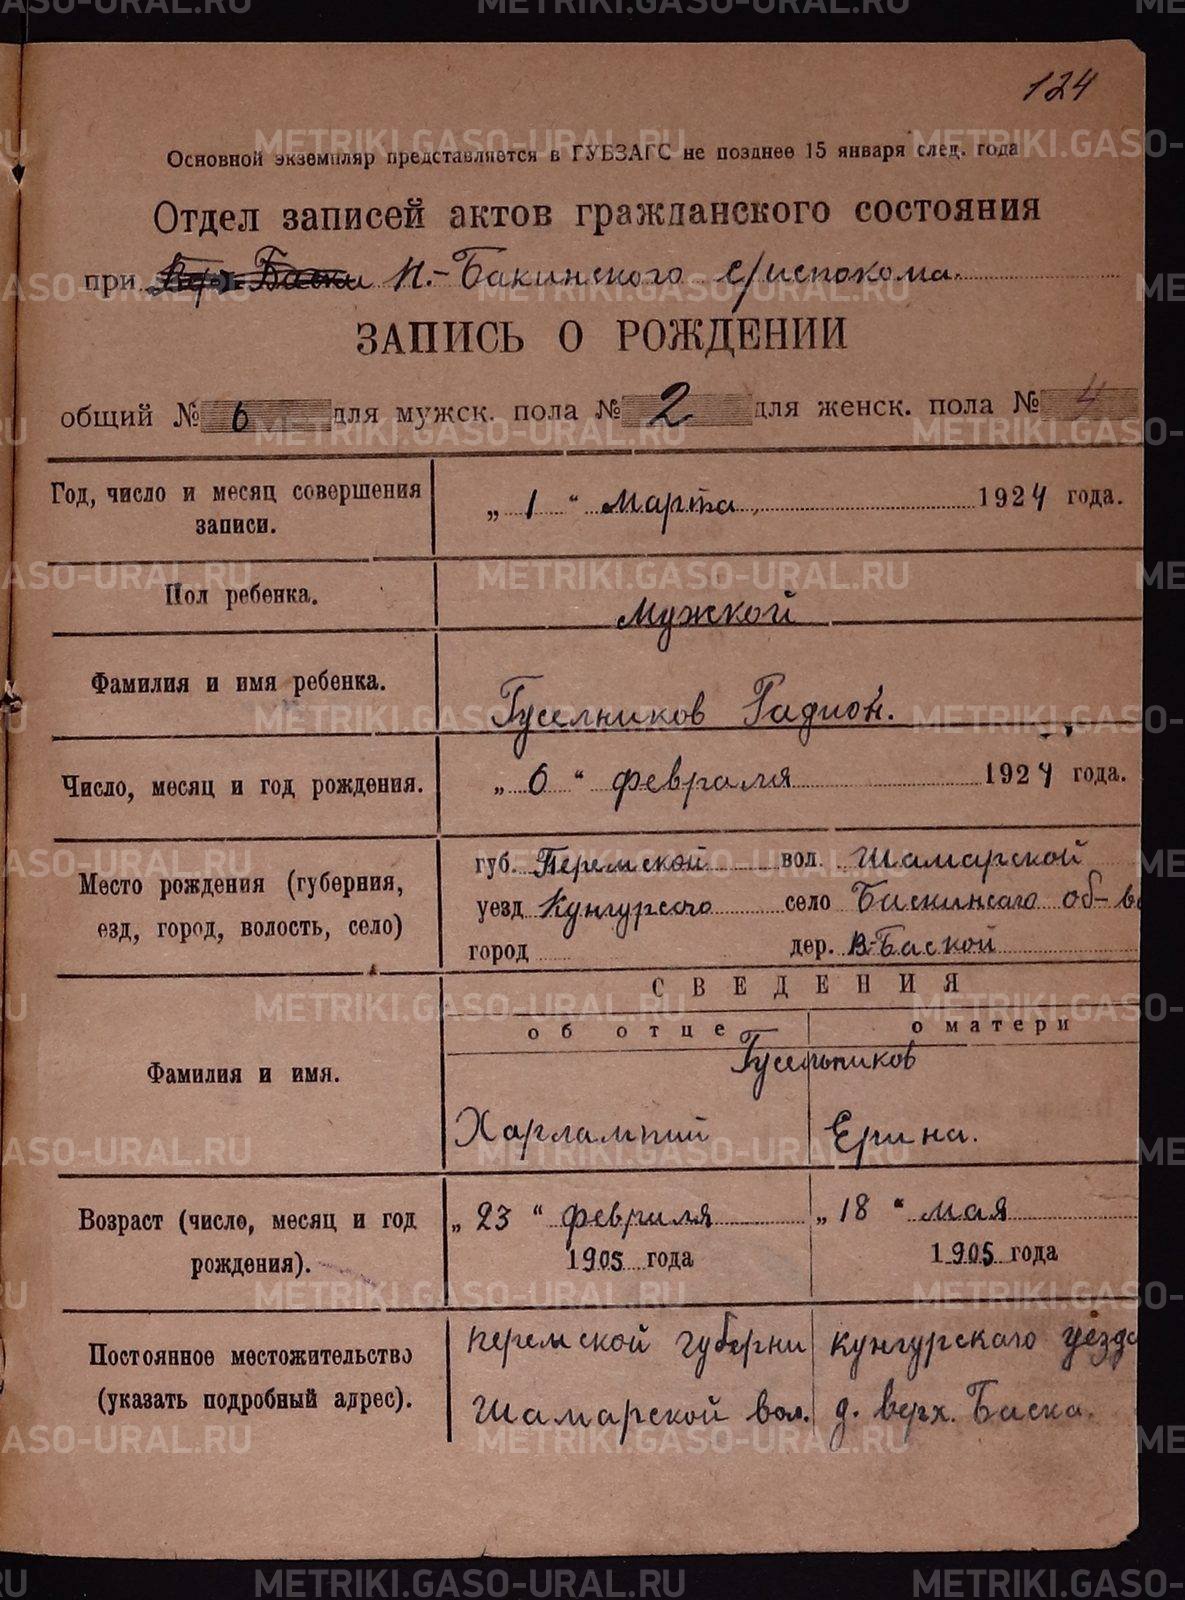 124
Основной экземпляр представляется в ГУБЗАГС не позднее 15 января след. года
Отдел записей актов гражданского состояния
при Н.-Бакинского с/испокома.
ЗАПИСЬ О РОЖДЕНИИ
общий № 6 для мужск. пола № 2 для женск. пола № 4
Год, число и месяц совершения записи.
„ 1 “ Марта 1924 года.
Пол ребенка.
Мужской
Фамилия и имя ребенка.
Гуселников Радион.
Число, месяц и год рождения.
„ 6 “ февраля 1924 года.
Место рождения (губерния,
езд, город, волость, село)
губ. Перемской вол. Шамарской
уезд Кунгурсого село Баскинсаго об-ва
город дер. В-Баской
СВЕДЕНИЯ
об отце о матери
Фамилия и имя.
Гусельников
Харлампий Ерина.
Возраст (число, месяц и год
рождения).
„ 23 “ февраля 1905 года
„ 18 “ мая 1905 года
Постоянное местожительство
(указать подробный адрес).
перемской губерни кунгурскаго уезда
Шамарской вол. д. верх. Баска.
METRIKI.GASO-URAL.RU